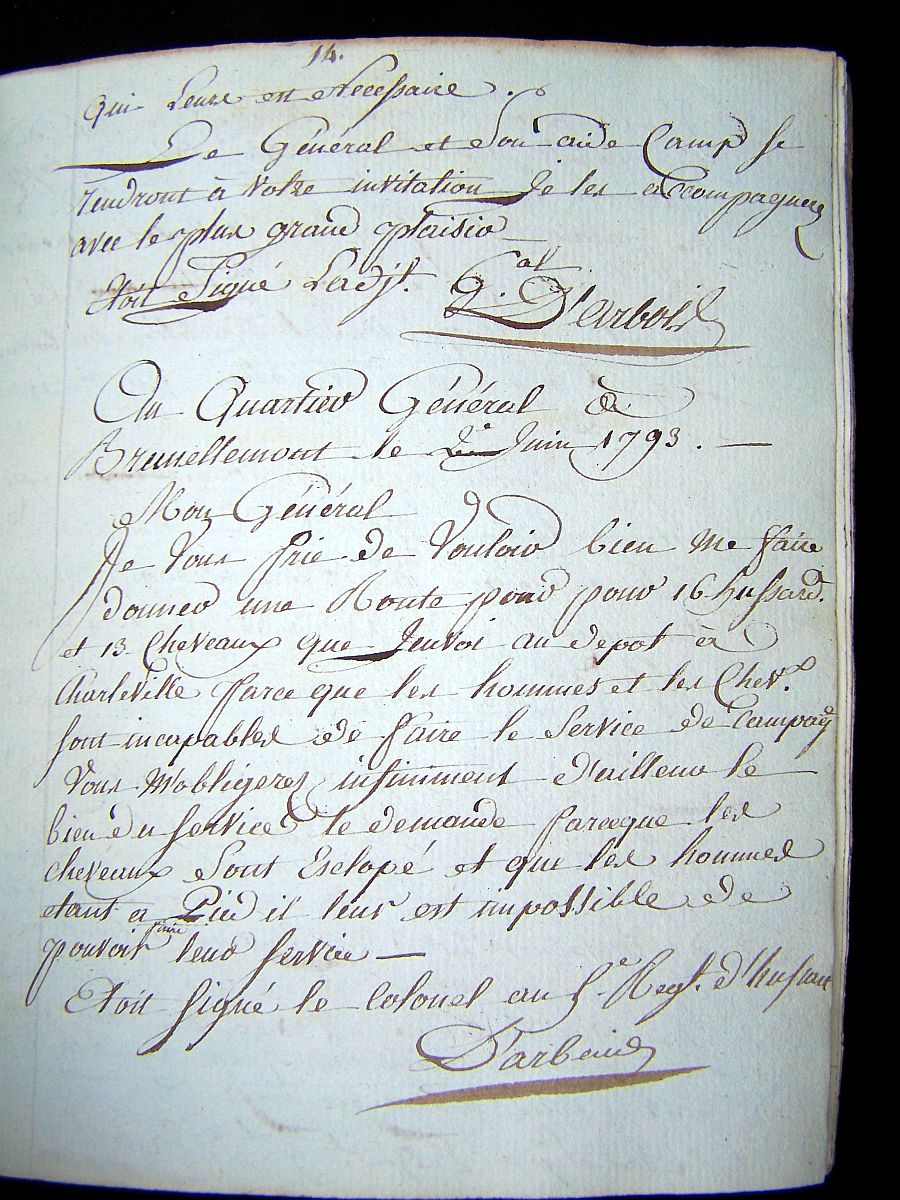 14.
qui leure est Necessaire.
Le Général et Son aide Camp se
rendront à votre invitation Je les accompagnerez
avec le plus grand plaisir
étoit Signé Ladjt. Gal
D'arbois
Au Quartier Général de
Brunellemont le 2e Juin 1793. —
Mon Général
Je vous prie de vouloir bien me faire
donner une Route pour pour 16 hussard.
et 13 Chevaux que Jenvoi au depot à
Charleville parce que les hommes et les Chev.x
sont incapables de faire le Service de Campag
Vous M'obligerez infiniment d'ailleur le
bien du service le demande parceque les
cheveaux Sont Esclopé et que les hommes
etant a Pied il leur est impossible de
pouvoir faire leur service —
étoit signé le Colonel au 5.e Regt. d'hussar
D'arbaud